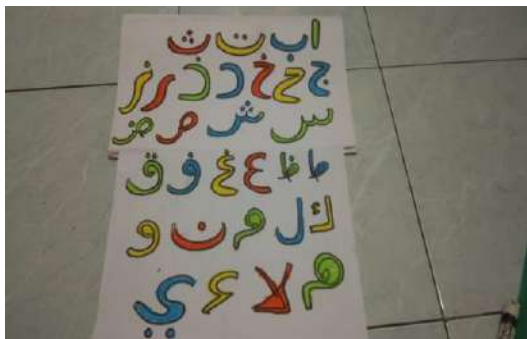 ا ب ت ث
ج ح خ د ذ ر ز
س ش ص ض
ط ظ ع غ ف ق
ك ل م ن و
لا ء ي